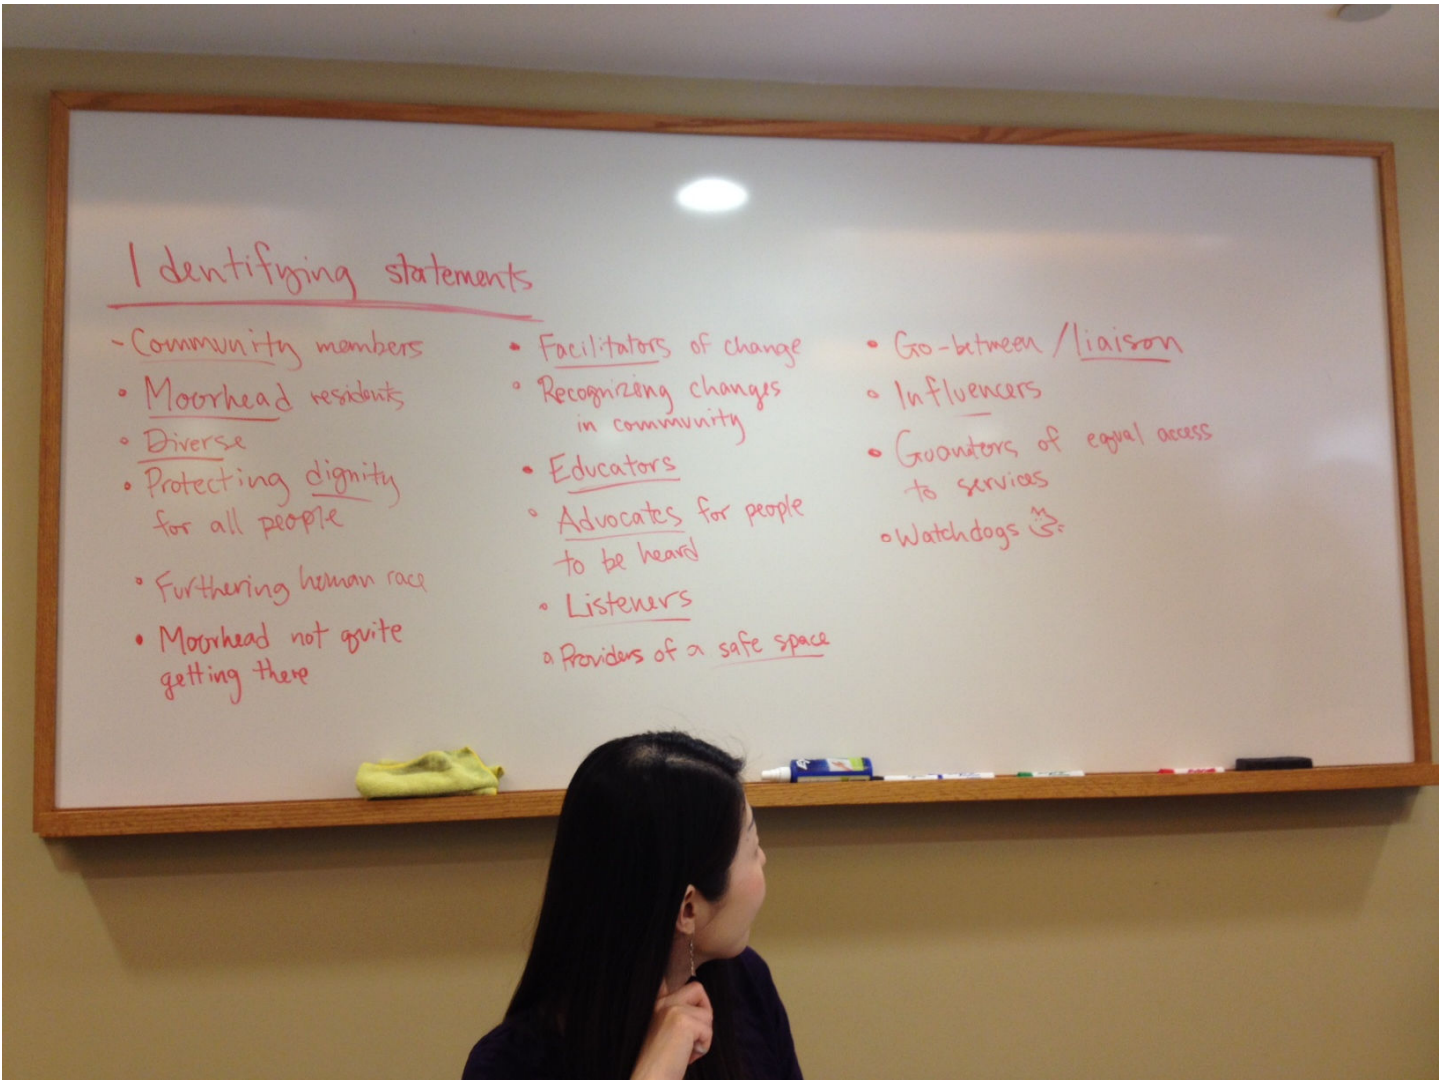 Identifying statements
- Community members
• Moorhead residents
• Diverse
• Protecting dignity
for all people
• Furthering human race
• Moorhead not quite
getting there
• Facilitators of change
• Recognizing changes
in community
• Educators
• Advocates for people
to be heard
• Listeners
• Providers of a safe space
• Go-between / liaison
• Influencers
• Guantors of equal access
to services
• Watchdogs